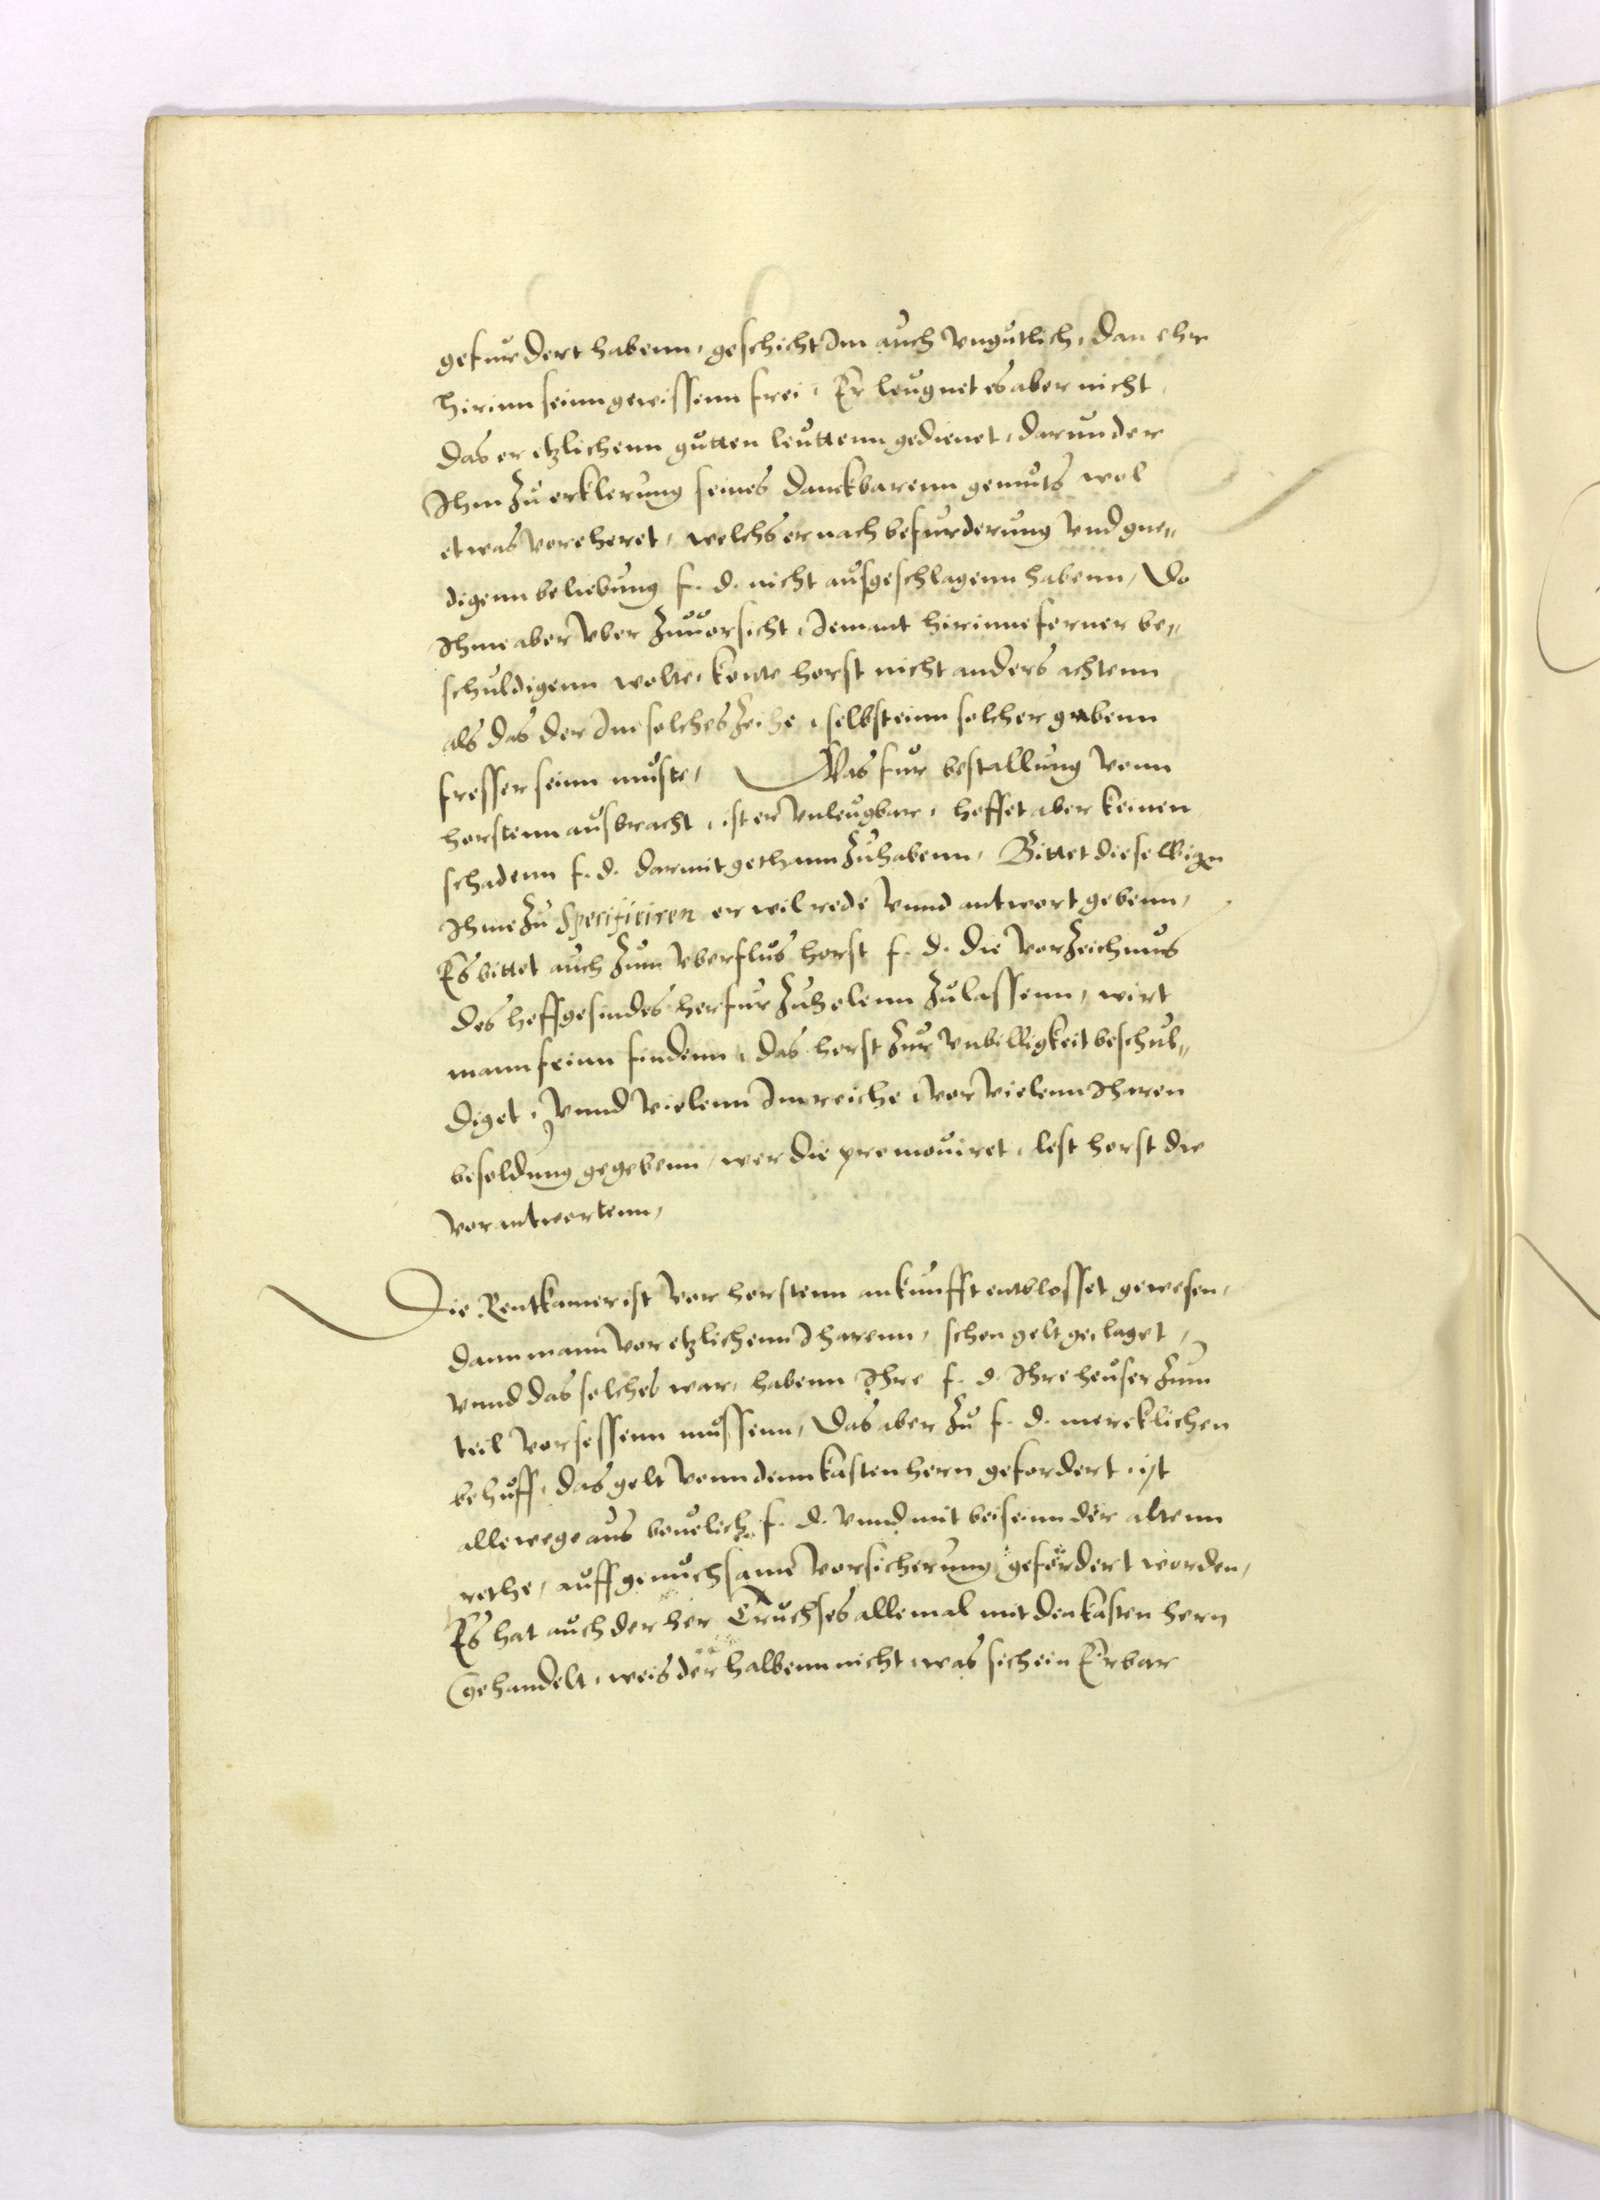 gefurdert habenn, geschicht Im auch vngutlich, dan ehr
hirinn seinn gewissenn frei, Er leugnet es aber nicht
das er etzlichenn gutten leuttenn gedienet, darunder
Ihm zu erklerung seines danckbarenn gemuts wol
etwas vereheret, welchs er nach befurderung vnd gne„
digenn beliebung f. d. nicht ausgeschlagenn habenn, Do
Ihme aber vber zuuorsicht, Iemant hirinne ferner be„
schuldigenn wolte, konte horst nicht anders achtenn
als das der Ime solches zeihe, selbst einn solcher gabenn
fresser seinn muste, Was fur bestallung vonn
horstenn ausbracht, ist er vnleugbar, hoffet aber keinen
schadenn f. d. darmit gethann zuhabenn, Bittet dieselbigen
Ihme zu Specificiren er wil rede vnnd antwort gebenn,
Es bittet auch zum vberflus horst f. d. die vorzeichnus
des hoffgesindes herfur zuholenn zulassenn, wirt
mann feinn findenn, das horst zur vnbilligkeit beschul„
diget, vnnd vielenn Im reiche, vor vielenn Iharen
besoldung gegebenn, wer die promouiret, lest horst die
vorantwortenn,
Die Rentkamer ist vor horstenn ankunfft entblosset gewesen,
dann mann vor etzlichenn Iharenn, schon gelt geclaget,
vnnd das solches war, habenn Ihre f. d. Ihre heuser zum
teil vorsessenn mussenn, Das aber zu f. d. mercklichen
behuff, das gelt vonn denn kastenhern gefordert, ist
allewege aus beuelich f. d. vnnd mit beiseinn der altenn
rethe, auff genuchsame vorsicherung gefordert worden,
Es hat auch der her Truchses allemal mit den kastenhern
gehandelt, weis derhalbenn nicht, was sich ein Erbar